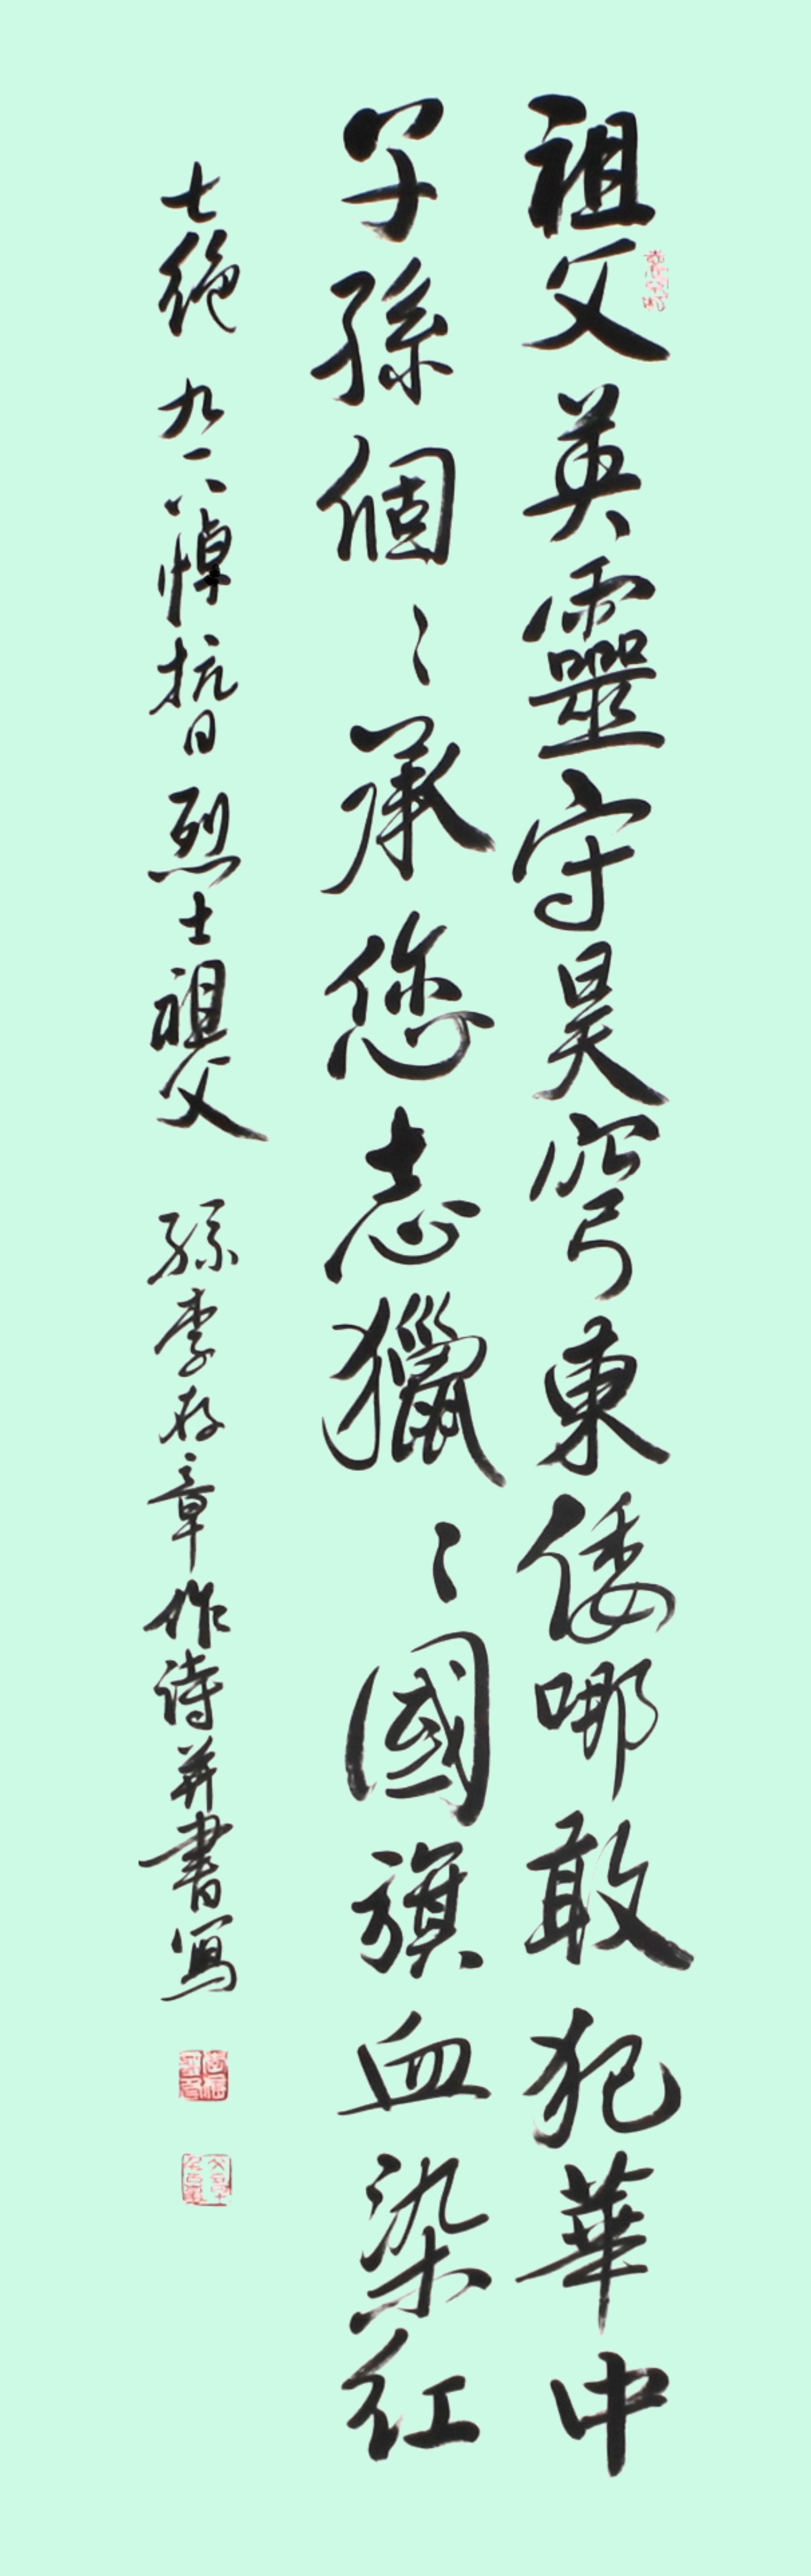 祖父英靈守昊穹東倭哪敢犯華中
子孫個〻承您志獵〻國旗血染红
七絕 九一八悼抗日烈士祖父 孫李存章作诗并書寫